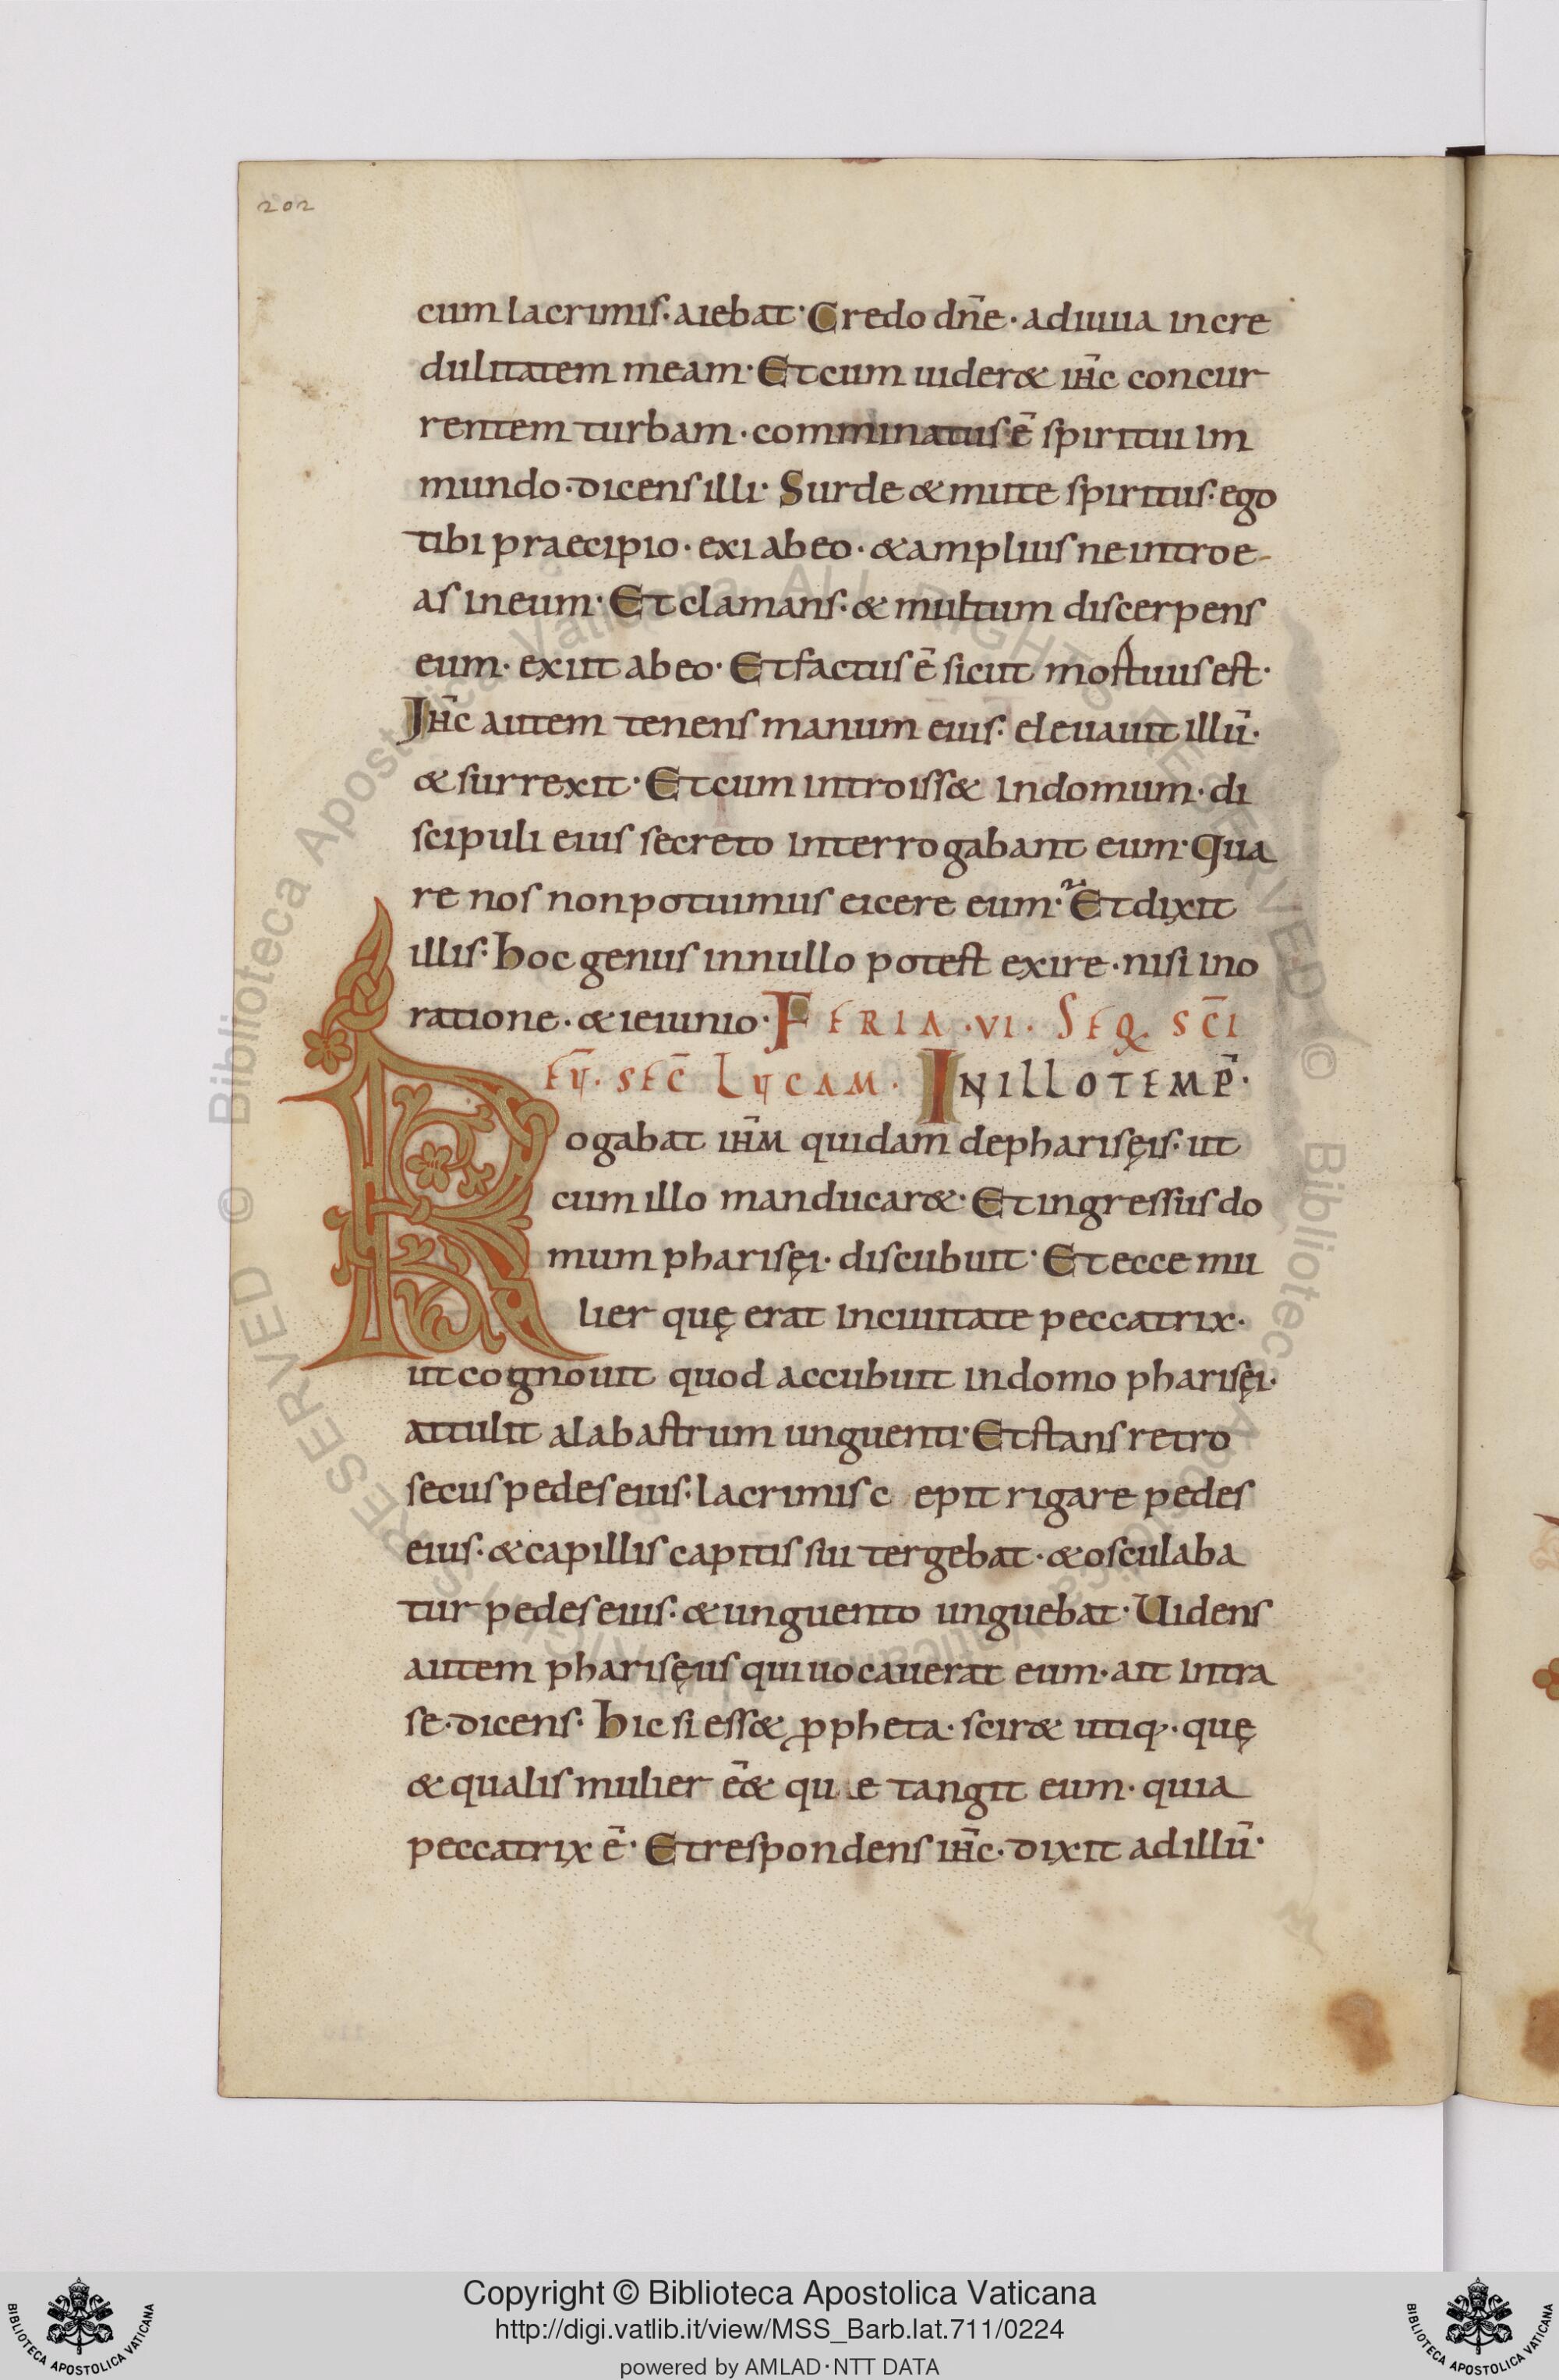 202
cum lacrimis. aiebat. Credo dn̄e. adiuua incre
dulitatem meam. Et cum uider& ih̄c concur
rentem turbam. comminatus ē spiritui im
mundo. dicens illi. Surde & mute spiritus. ego
tibi praecipio. exi ab eo. & amplius ne introe-
as in eum. Et clamans. & multum discerpens
eum. exiit ab eo. Et factus ē sicut mortuus est.
Ih̄c autem tenens manum eius. eleuauit illū.
& surrexit. Et cum introiss& in domum. di
scipuli eius secreto interrogabant eum. Qua
re nos non potuimus eicere eum. Et dixit
illis. Hoc genus in nullo potest exire. nisi in o
ratione. & ieiunio. FERIA .VI. SEQ. SC̄I
EỸ. SEC̄ LYCAM. IN ILLO TEMP̄.
Rogabat ih̄m quidam de pharisęis. ut
cum illo manducar&. Et ingressus do
mum pharisęi. discubuit. Et ecce mu
lier quę erat in ciuitate peccatrix.
ut cognouit quod accubuit in domo pharisęi.
attulit alabastrum unguenti. Et stans retro
secus pedes eius. lacrimis c epit rigare pedes
eius. & capillis capitis sui tergebat. & osculaba
tur pedes eius. & unguento unguebat. Uidens
autem pharisęus qui uocauerat eum. ait intra
se. dicens. Hic si ess& ꝓpheta. scir& utiq;. quę
& qualis mulier ē& que tangit eum. quia
peccatrix ē. Et respondens ih̄c. dixit ad illū.
Copyright © Biblioteca Apostolica Vaticana
http://digi.vatlib.it/view/MSS_Barb.lat.711/0224
powered by AMLAD·NTT DATA
BIBLIOTECA APOSTOLICA VATICANA
BIBLIOTECA APOSTOLICA VATICANA